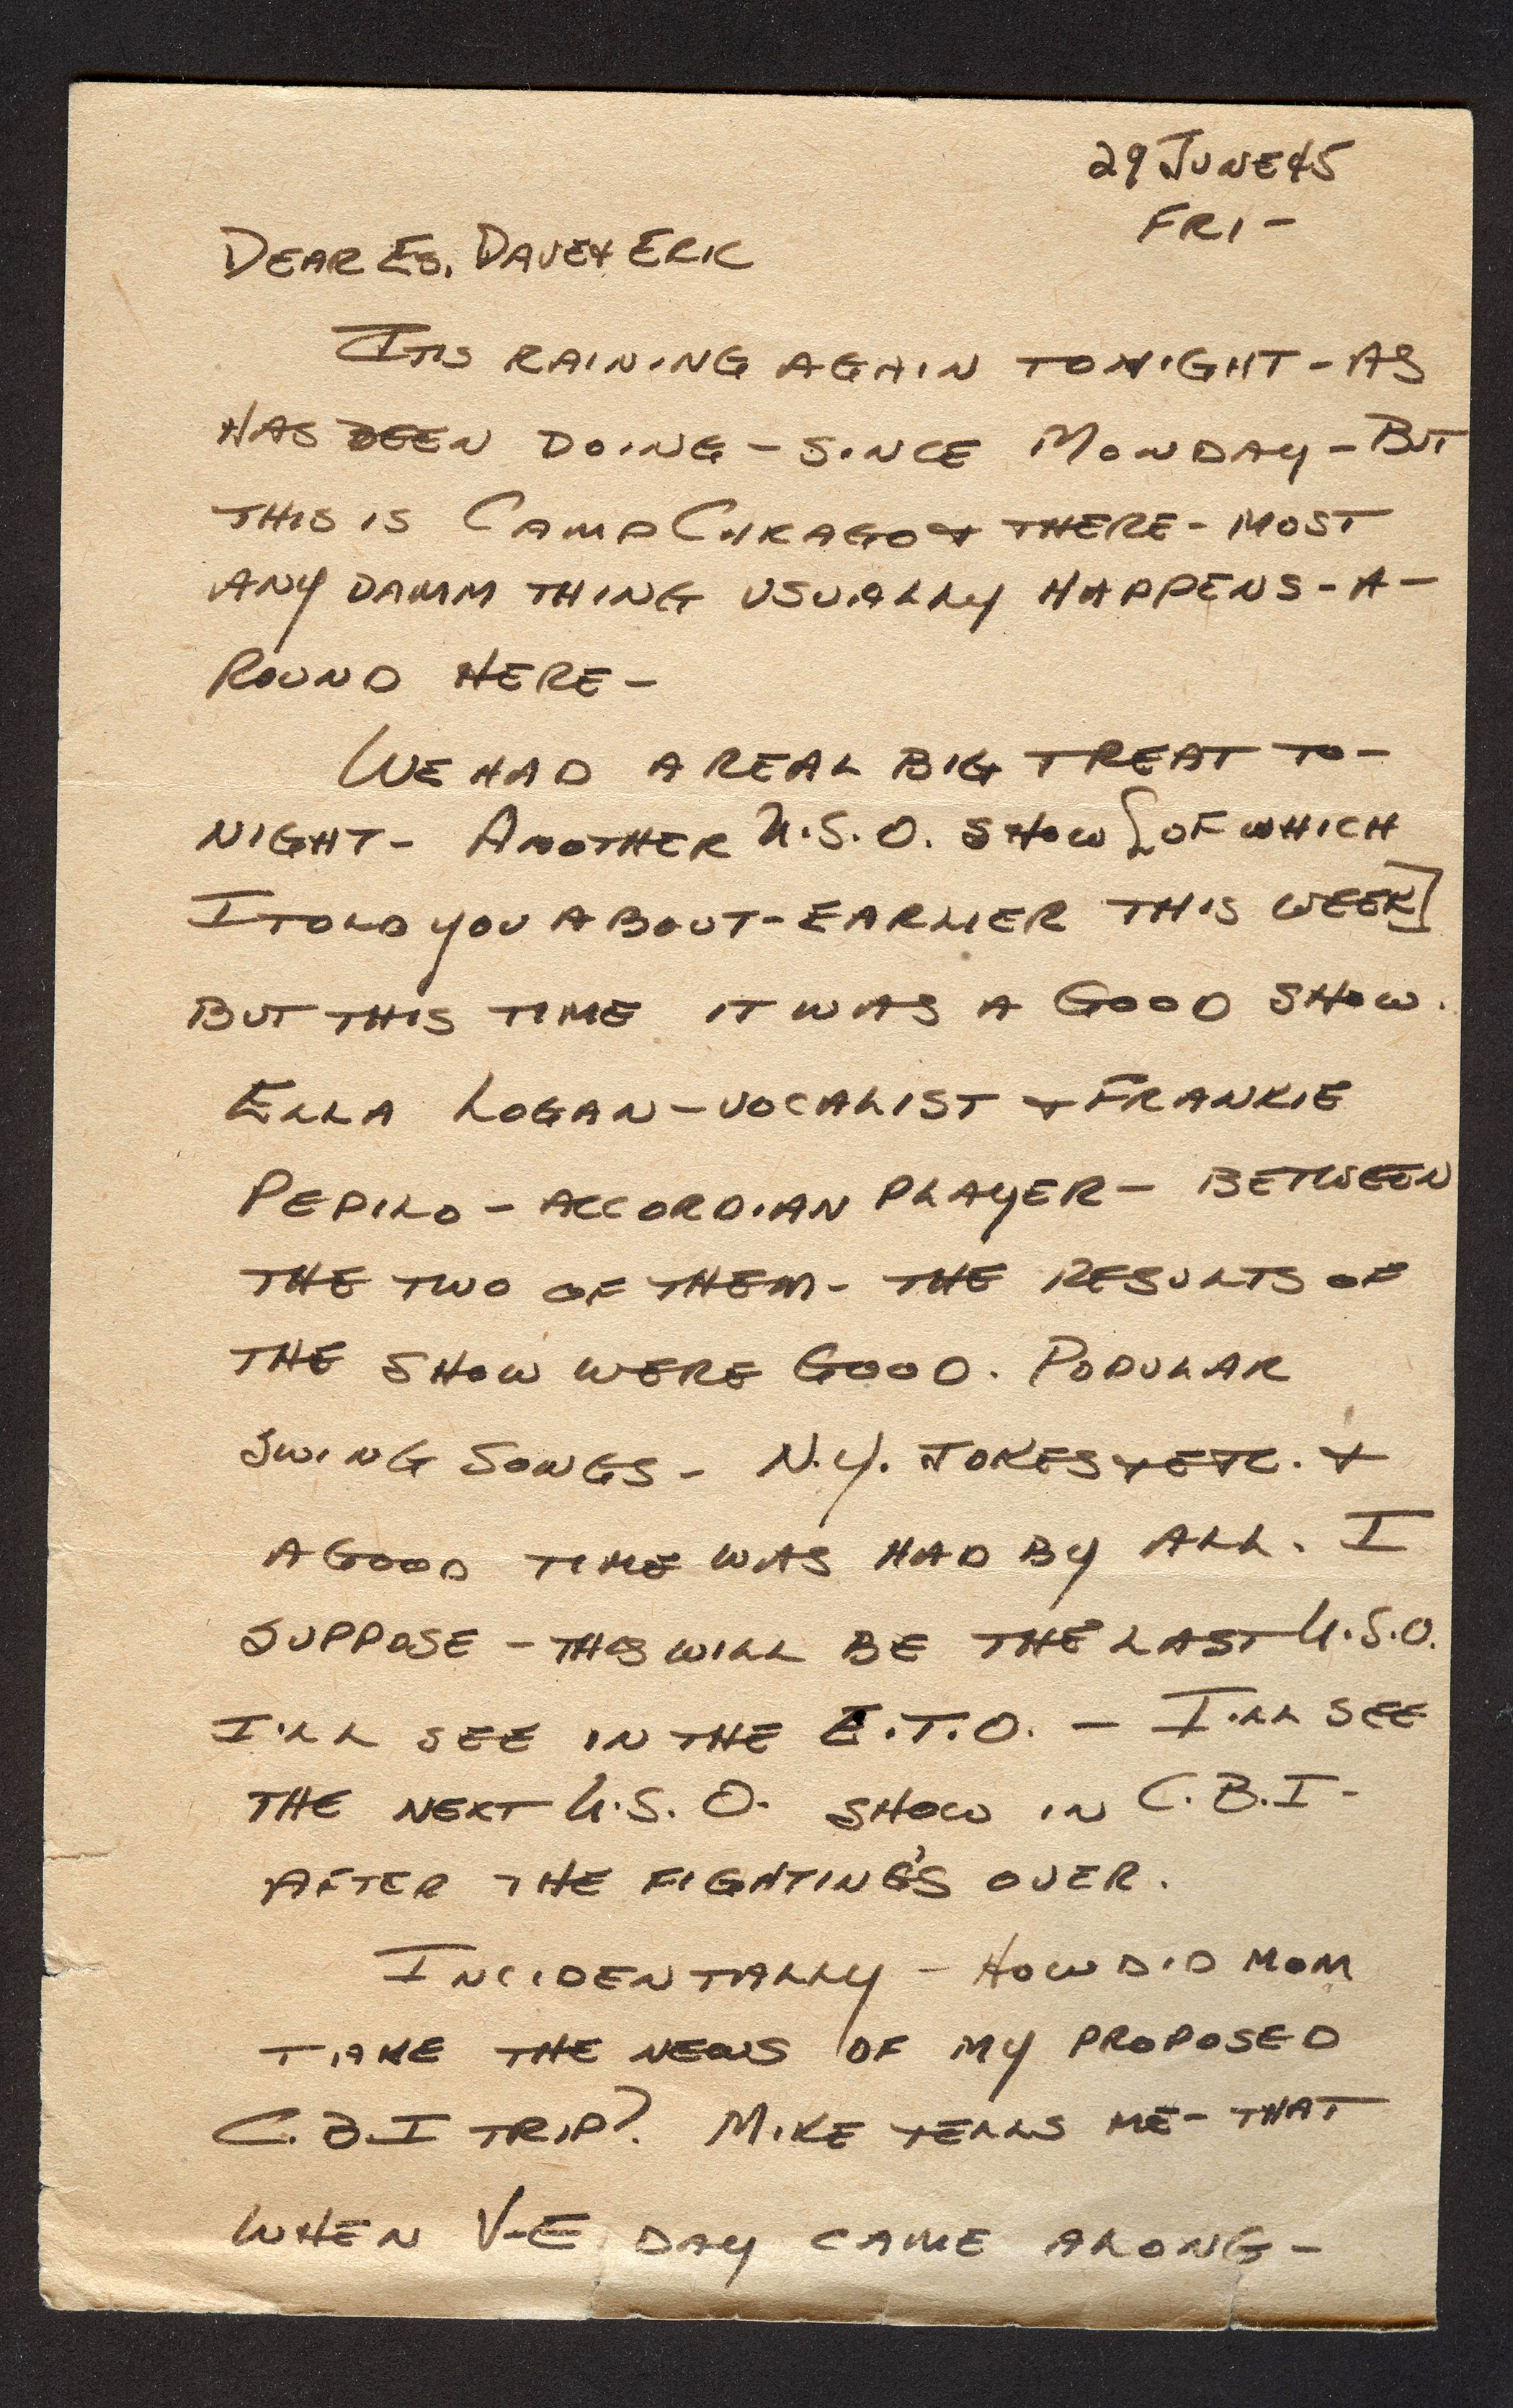 29 JUNE 45
FRI -
DEAR ES, DAVE & ERIC
ITS RAINING AGAIN TONIGHT - AS
HAS BEEN DOING - SINCE MONDAY - BUT
THIS IS CAMP CHICAGO & THERE - MOST
ANY DAMM THING USUALLY HAPPENS - A -
ROUND HERE -
WE HAD A REAL BIG TREAT TO -
NIGHT - ANOTHER U.S.O. SHOW [OF WHICH
I TOLD YOU ABOUT - EARLIER THIS WEEK]
BUT THIS TIME IT WAS A GOOD SHOW.
ELLA LOGAN - VOCALIST & FRANKIE
PEPILO - ACCORDIAN PLAYER - BETWEEN
THE TWO OF THEM - THE RESULTS OF
THE SHOW WERE GOOD. POPULAR
SWING SONGS - N.Y. JOKES & ETC. &
A GOOD TIME WAS HAD BY ALL. I
SUPPOSE - THIS WILL BE THE LAST U.S.O.
I'LL SEE IN THE E.T.O. - I'LL SEE
THE NEXT U.S.O. SHOW IN C.B.I -
AFTER THE FIGHTING'S OVER.
INCIDENTALLY - HOW DID MOM
TAKE THE NEWS OF MY PROPOSED
C.B.I TRIP? MIKE TELLS ME - THAT
WHEN V-E DAY CAME ALONG -